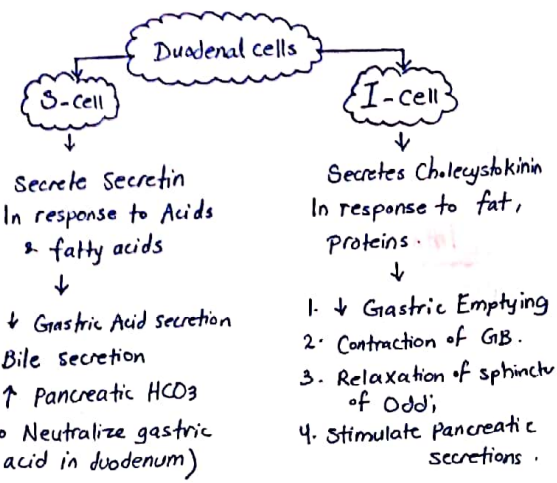 Duodenal cells
S-cell
↓
Secrete Secretin
In response to Acids
& fatty acids
↓
↓ Gastric Acid secretion
Bile secretion
↑ Pancreatic HCO3
Neutralize gastric
acid in duodenum)
I-cell
↓
Secretes Cholecystokinin
In response to fat,
Proteins.
↓
1. ↓ Gastric Emptying
2. Contraction of GB.
3. Relaxation of sphincte
of Oddi,
4. Stimulate Pancreatic
secretions.